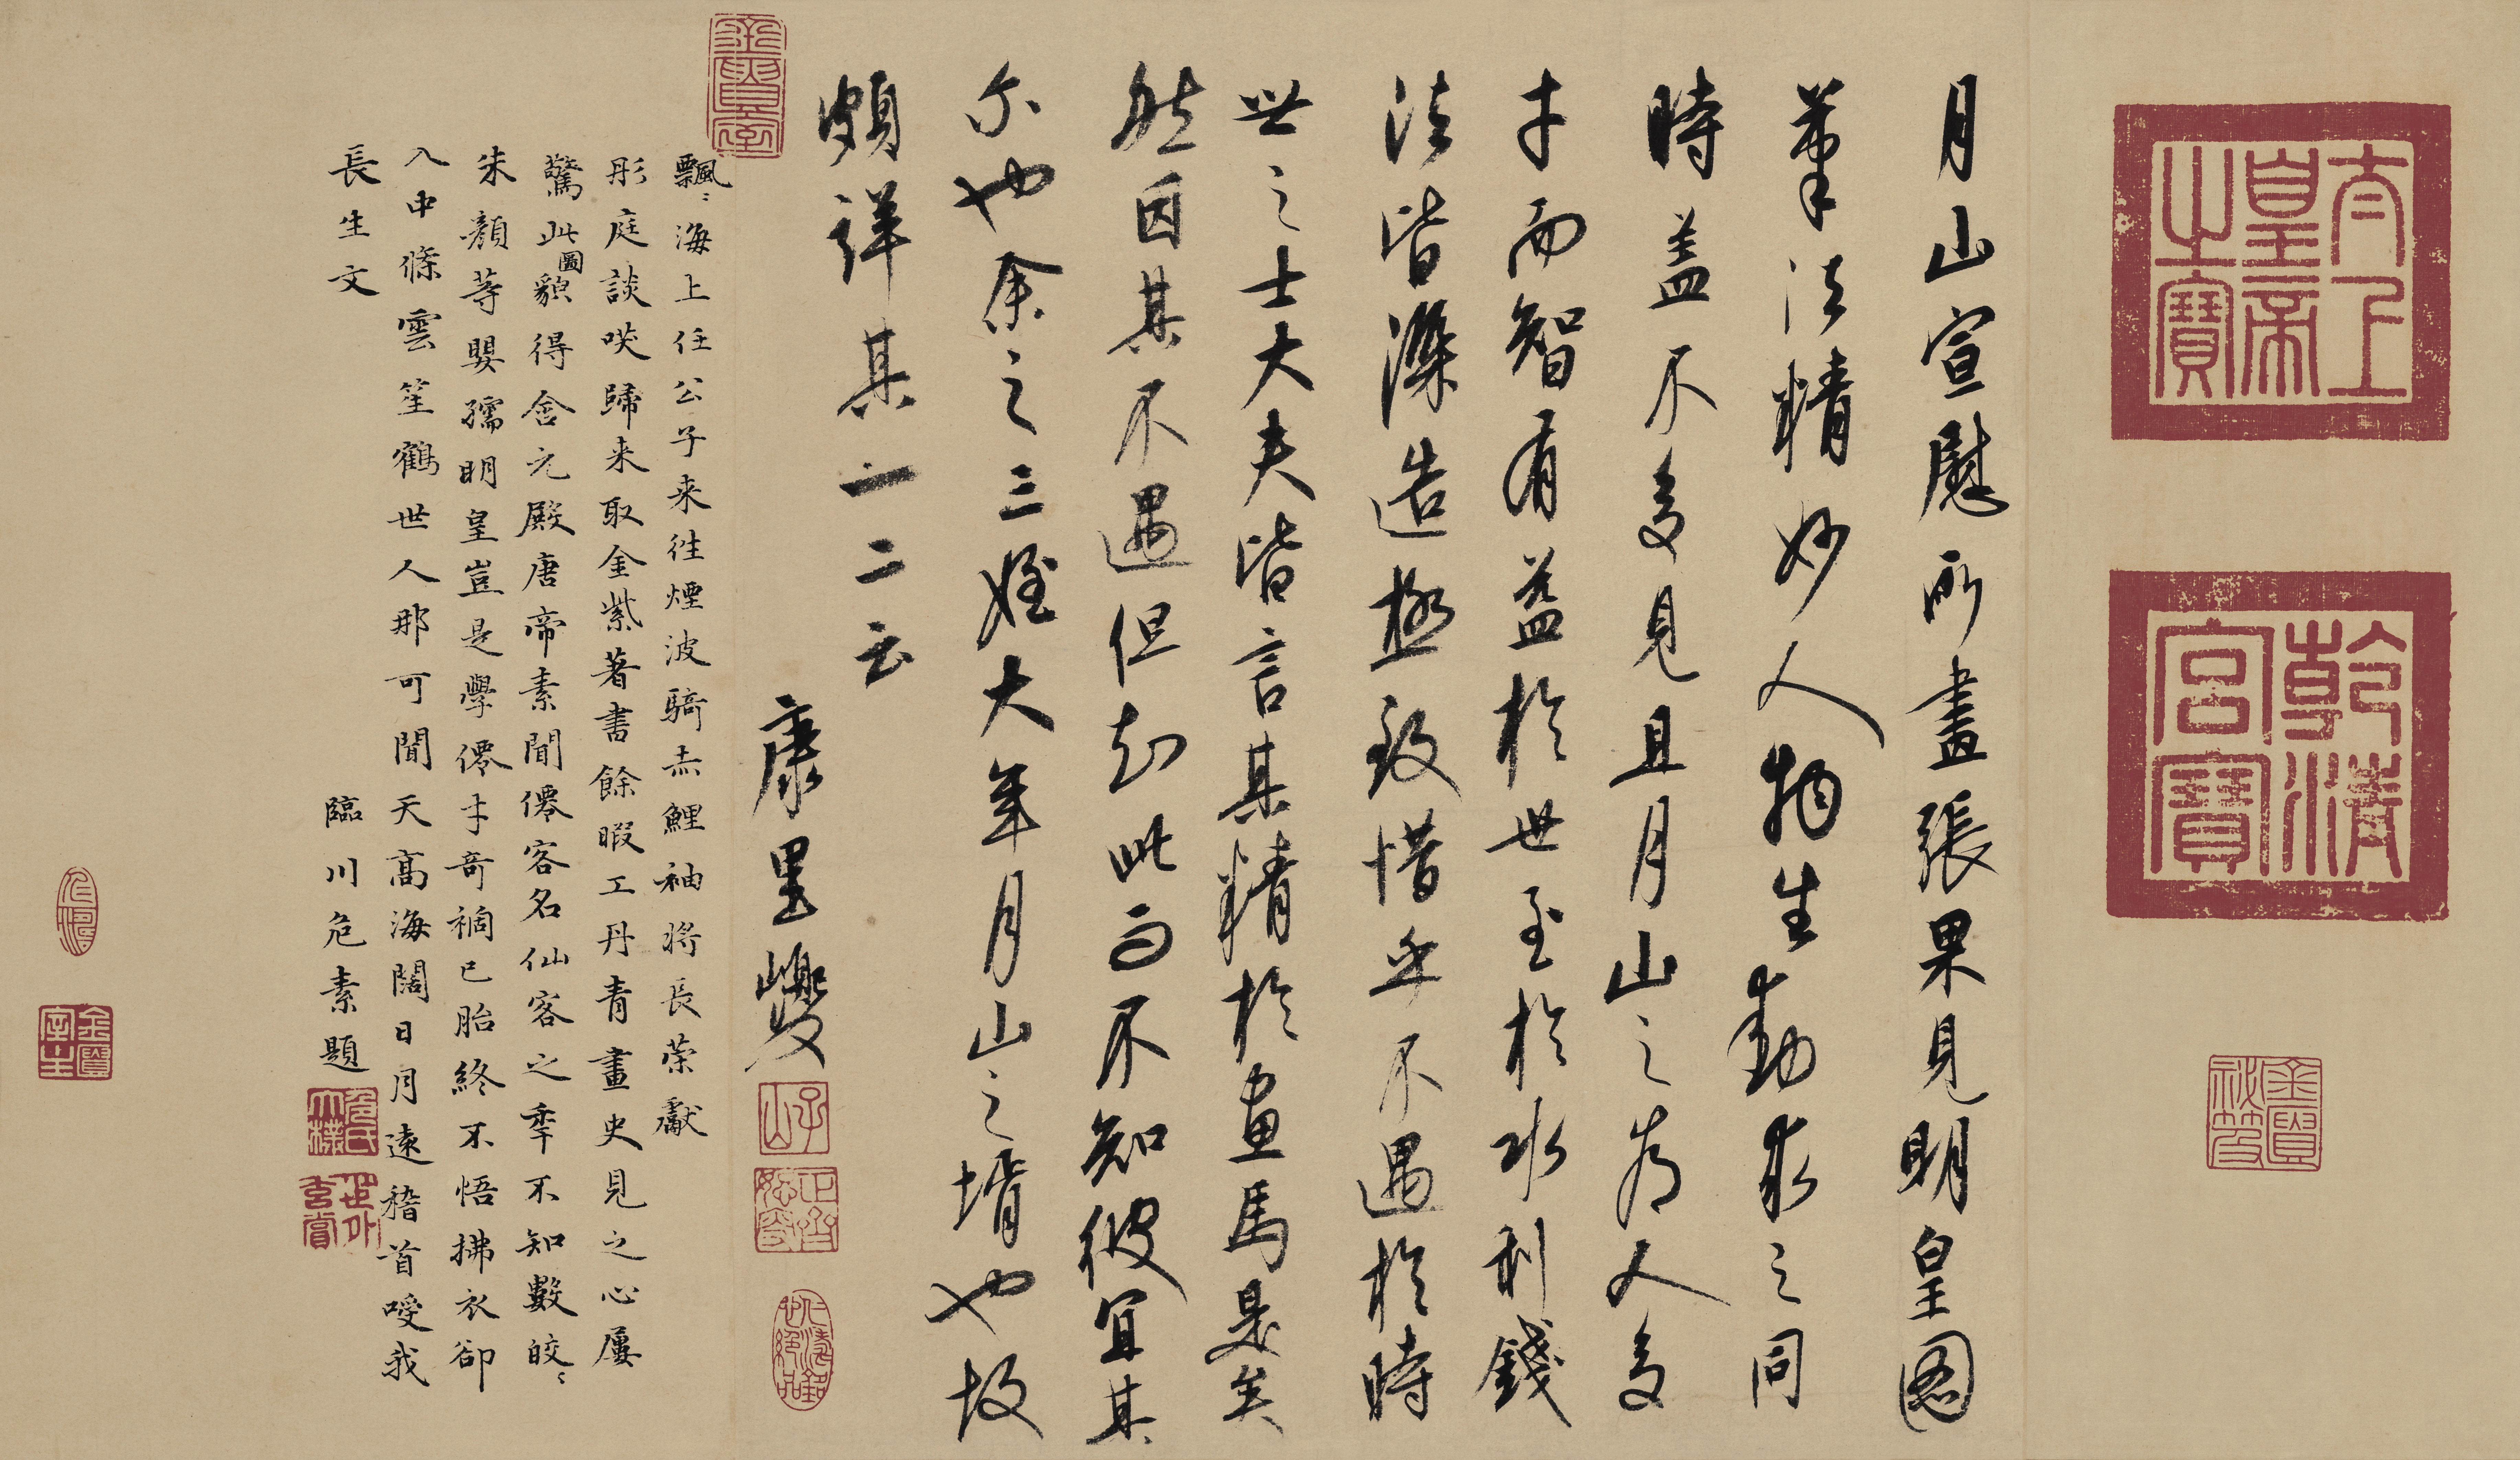 太上皇帝之寶
乾清宮寶
月山宣慰所畫張果見明皇圖
筆法精妙人物生動求之同
時蓋不多見且月山之為人多
才而智有益於世至於水利錢
法皆深造極致惜乎不遇於時
世之士大夫皆言其精於畫馬是矣
然因其不遇但知此而不知彼宜其
尔也余之三姪大年月山之壻也故
頗詳其一二云
康里巎
子山
飄〻海上任公子来往煙波騎赤鯉袖将長荣獻
彤庭談咲歸来取金紫著書餘暇工丹青畫史見之心屢
驚此圖貌得含元殿唐帝素聞僊客名仙客之季不知數皎〻
朱顏等嬰孺明皇豈是學僊才奇禍已胎終不悟拂衣卻
入中條雲笙鶴世人那可聞天高海闊日月遠稽首嗳我
長生文
臨川危素題